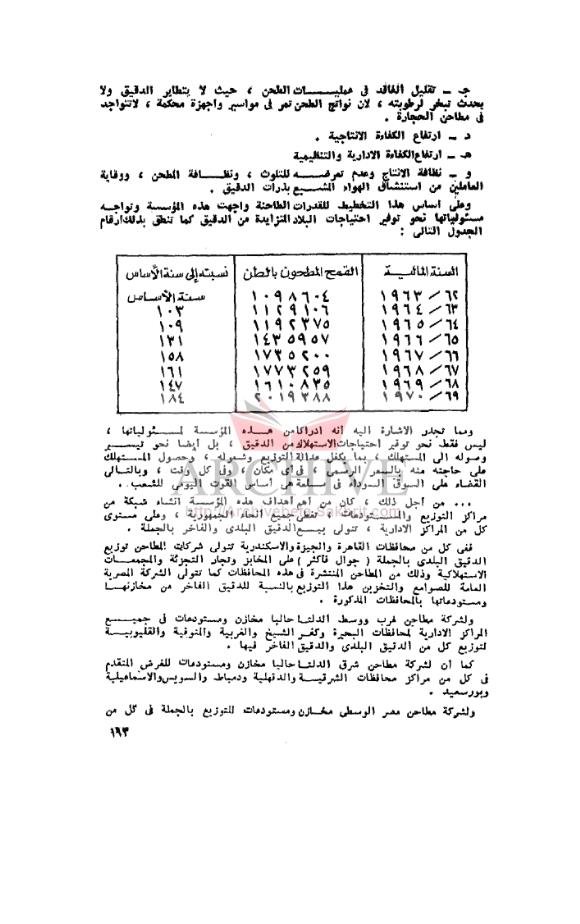 جـ ــ تقليل الفاقد في عمليـــــات الطحن ، حيث لا يتطاير الدقيق ولا
يحدث تبخر لرطوبته ، لان نواتج الطحن تمر في مواسير واجهزة محكمة ، لاتتواجد
في مطاحن الحجارة .
د ــ ارتفاع الكفاءة الانتاجية .
هـ ــ ارتفاع الكفاءة الادارية والتنظيمية
و ــ نظافة الانتاج وعدم تعرضـــــه للتلوث ، ونظـــافة المطحن ، ووقاية
العاملين من استنشاق الهواء المشـــبع بذرات الدقيق .
وعلى اساس هذا التخطيط للقدرات الطاحنة واجهت هذه المؤسسة وتواجـه
مسئولياتها نحو توفير احتياجات البلاد المتزايدة من الدقيق كما تنطق بذلك ارقام
الجدول التالى :
السنة المالية القمح المطحون بالطن نسبته إلى سنة الأساس
٦٢ / ١٩٦٣ ١٠٩٨٦٠٤ سنة الأساس
٦٣ / ١٩٦٤ ١١٢٩١٠٦ ١٠٣
٦٤ / ١٩٦٥ ١١٩٢٣٧٥ ١٠٩
٦٥ / ١٩٦٦ ١٤٣٥٩٥٧ ١٣١
٦٦ / ١٩٦٧ ١٧٣٥٢٠٠ ١٥٨
٦٧ / ١٩٦٨ ١٧٧٣٢٥٩ ١٦١
٦٨ / ١٩٦٩ ١٦١٠٨٣٥ ١٤٧
٦٩ / ١٩٧٠ ٢٠١٩٣٨٨ ١٨٤
ومما تجدر الاشارة اليه أنه ادراكا من هـــذه المؤسسة لمسـئولياتها ،
ليس فقط نحو توفير احتياجات الاستهلاك من الدقيق ، بل أيضا نحو تيســير
وصوله الى المستهلك ، بما يكفل عدالة التوزيع وشموله ، وحصول المستهلك
على حاجته منه بالسعر الرسمى ، في أى مكان ، وفي كل وقت ، وبالتالى
القضاء على السوق السوداء في سلعة هى أساس القوت اليومى للشعب .
... من أجل ذلك ، كان من أهم أهداف هذه المؤسسة انشاء شبكة من
مراكز التوزيع والمستودعات ، تغطى جميع أنحاء الجمهورية ، وعلى مستوى
كل من المراكز الادارية ، تتولى بيـــع الدقيق البلدى والفاخر بالجملة .
ARCHIVE
http://Archivebeta.Sakhrit.com
ففى كل من محافظات القاهرة والجيزة والاسكندرية تتولى شركات المطاحن توزيع
الدقيق البلدى بالجملة ( جوال فأكثر ) على المخابز وتجار التجزئة والمجمعـــات
الاستهلاكية وذلك من المطاحن المنتشرة في هذه المحافظات كما تتولى الشركة المصرية
العامة للصوامع والتخزين هذا التوزيع بالنسبة للدقيق الفاخر من مخازنهــا
ومستودعاتها بالمحافظات المذكورة .
ولشركة مطاحن غرب ووسط الدلتـا حاليا مخازن ومستودعات في جميـــع
المراكز الادارية لمحافظات البحيرة وكفر الشيخ والغربية والمنوفية والقليوبيـــة
لتوزيع كل من الدقيق البلدى والدقيق الفاخر فيها .
كما أن لشركة مطاحن شرق الدلتـا حاليا مخازن ومستودعات للغرض المتقدم
في كل من مراكز محافظات الشرقيــة والدقهلية ودمياط والسويس والاسماعيلية
وبورسعيد .
ولشركة مطاحن مصر الوسطى مخـازن ومستودعات للتوزيع بالجملة في كل من
١٦٣